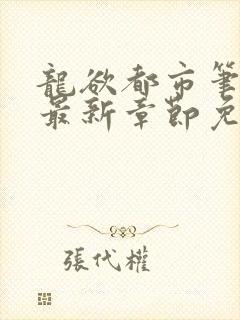 龍欲都市筆
最新章節免
張代權